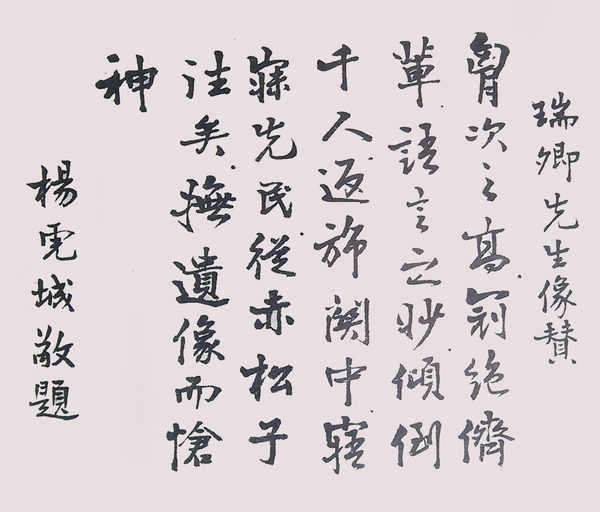 瑞卿先生像賛
胷次之高冠絶儕
輩語言之妙傾倒
千人返旆関中寤
寐先民從赤松子
往矣撫遺像而愴
神
楊虎城敬題